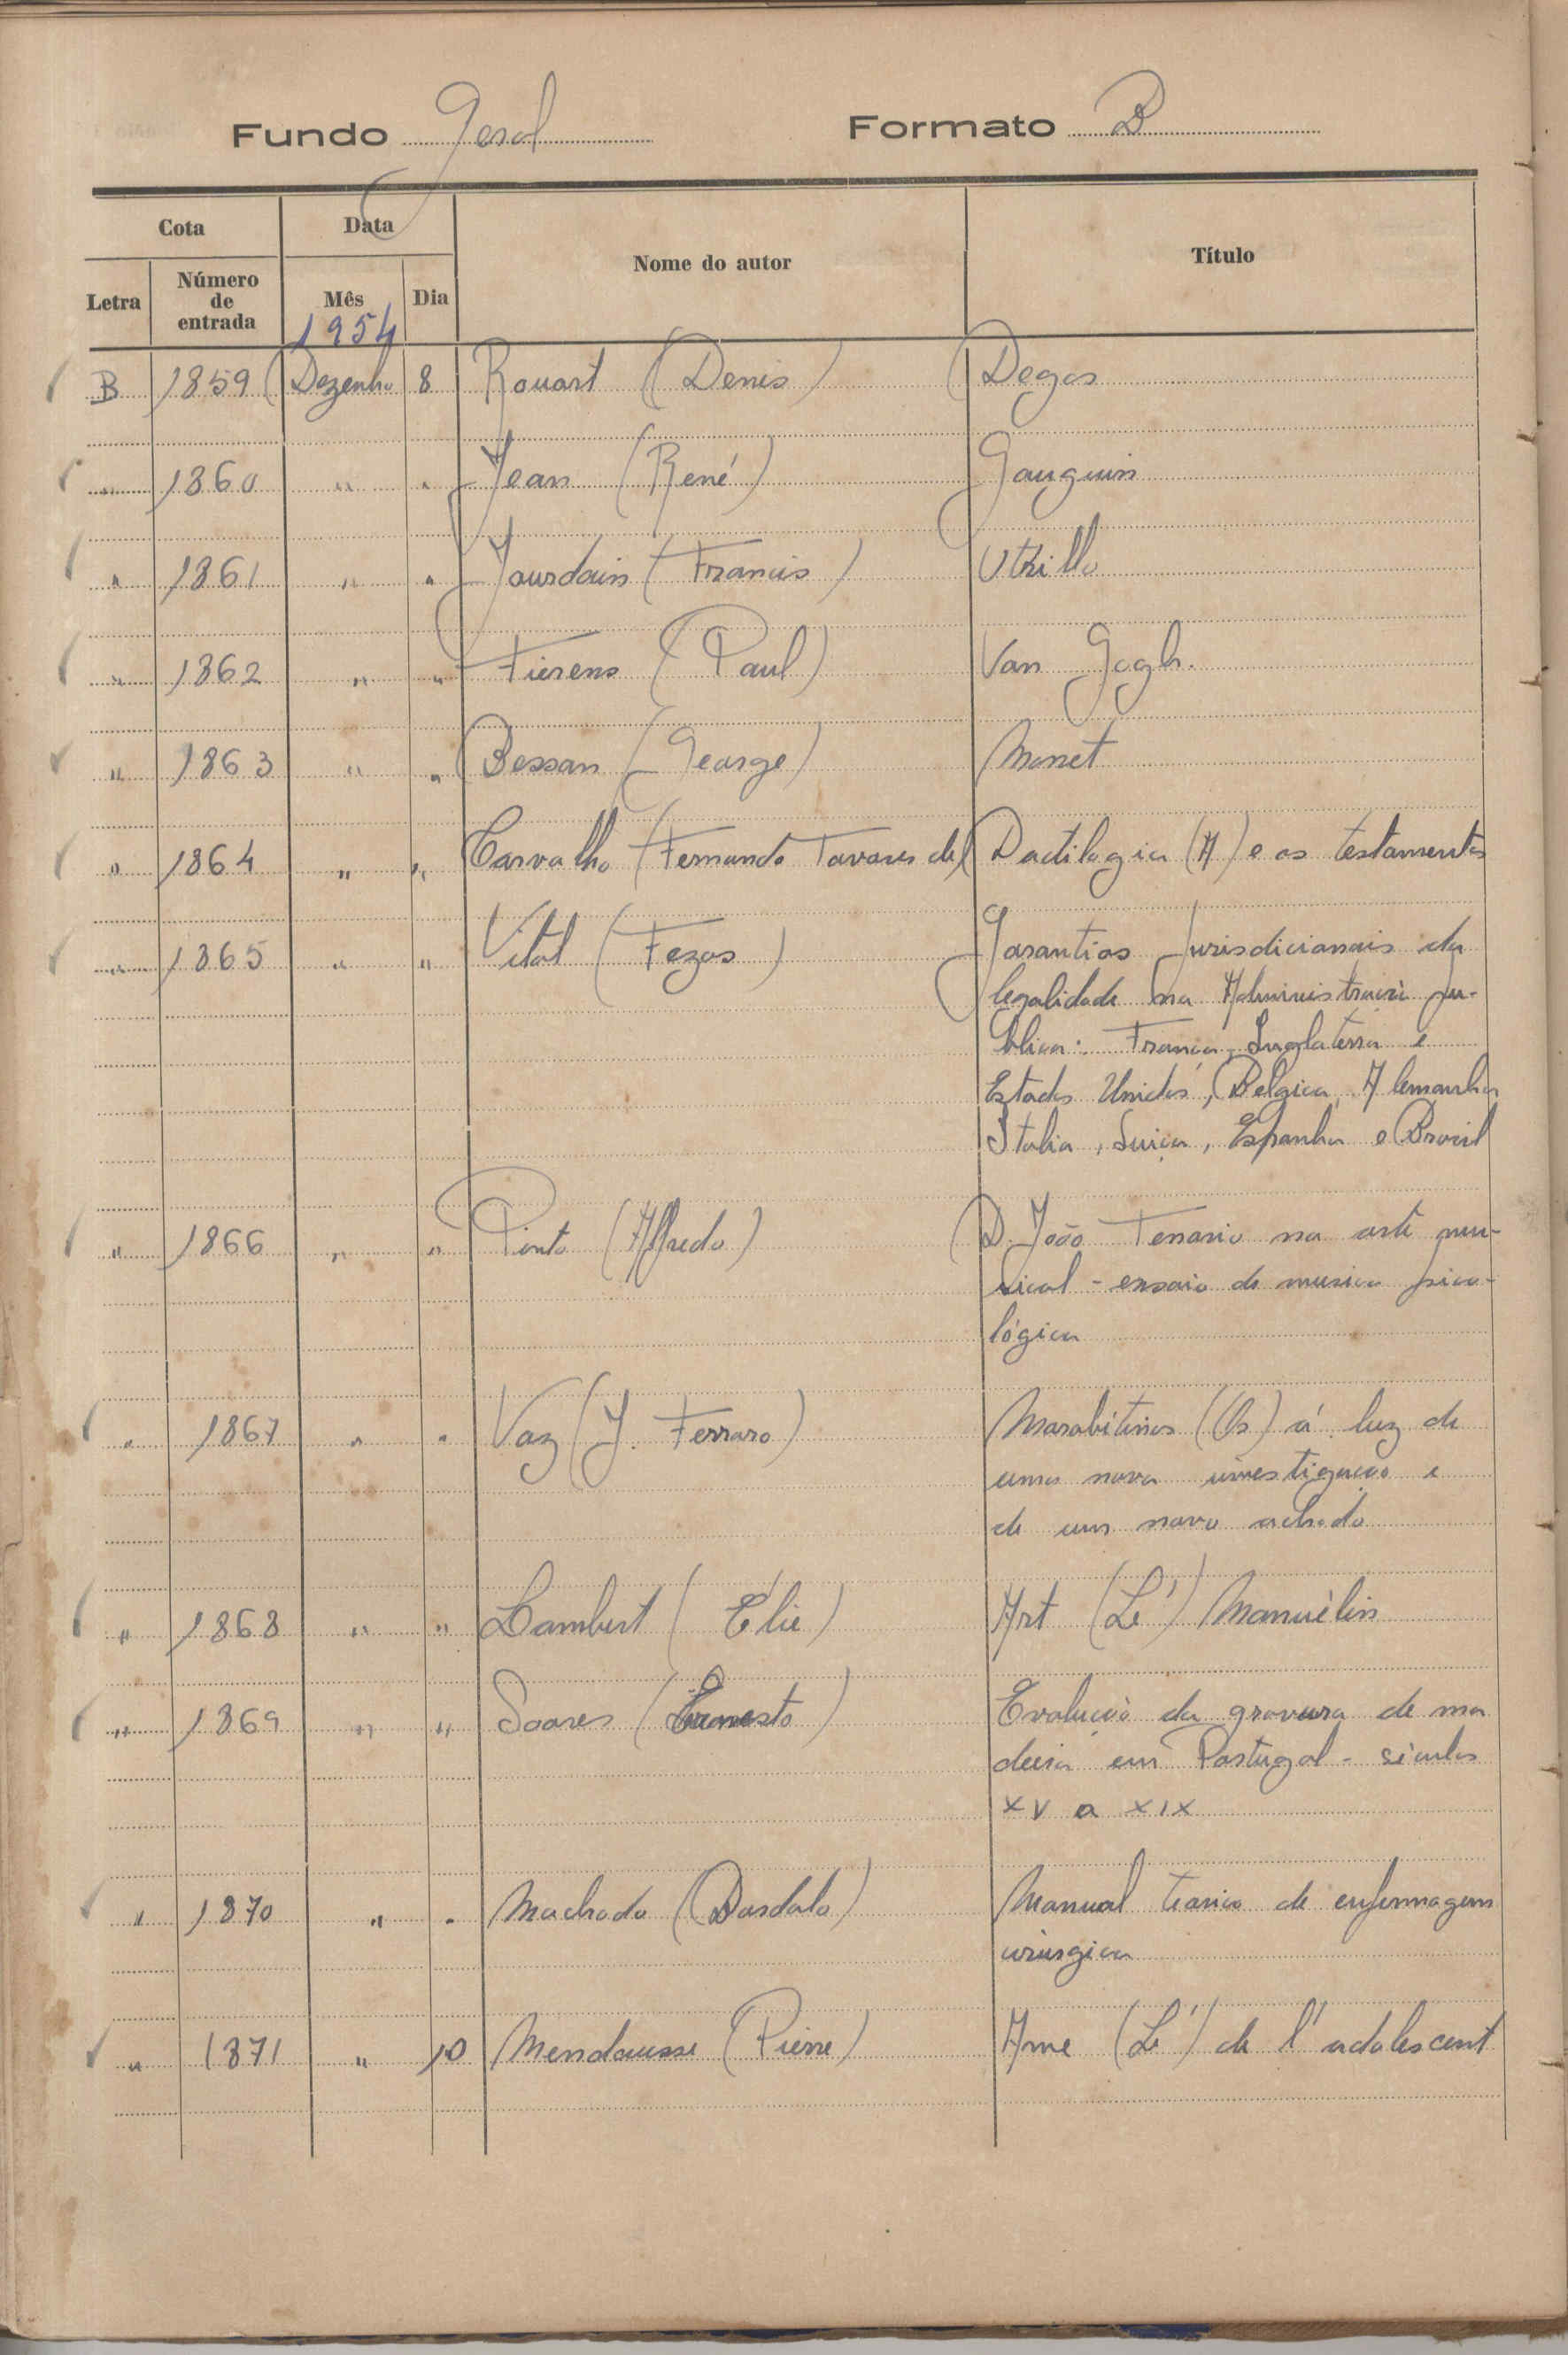 Fundo Geral Formato B
Cota Data Nome do autor Título
Letra Número de entrada Mês Dia
1954
B 1859 Dezenho 8 Rouart (Denis) Degas
" 1860 " " Jean (René) Gauguin
" 1861 " " Jourdain (Francis) Utrillo
" 1862 " " Fierens (Paul) Van Gogh.
" 1863 " " Bessan (George) Monet
" 1864 " " Carvalho (Fernando Tavares de) Dactilogia (A) e os testamentos
" 1865 " " Vital (Fezas) Garantias Jurisdicionais da
legalidade na Administração pu-
blica: França, Inglaterra e
Estados Unidos, Belgica, Alemanha
Italia, Suiça, Espanha e Brasil
" 1866 " " Pinto (Alfredo) D. João Tenorio na arte mu-
sical - ensaio de musica psico-
lógica
" 1867 " " Vaz (J. Ferraro) Marabitinos (Os) á luz de
uma nova investigação e
de um novo achado
" 1868 " " Lambert (Élie) Art (L') Manuèlin
" 1869 " " Soares (Ernesto) Evolução da gravura de ma
deira em Portugal - séculos
XV a XIX
" 1870 " " Machado (Bordalo) Manual teorico de enfermagem
cirurgica
" 1871 " 10 Mendousse (Pierre) Ame (L') de l'adolescent